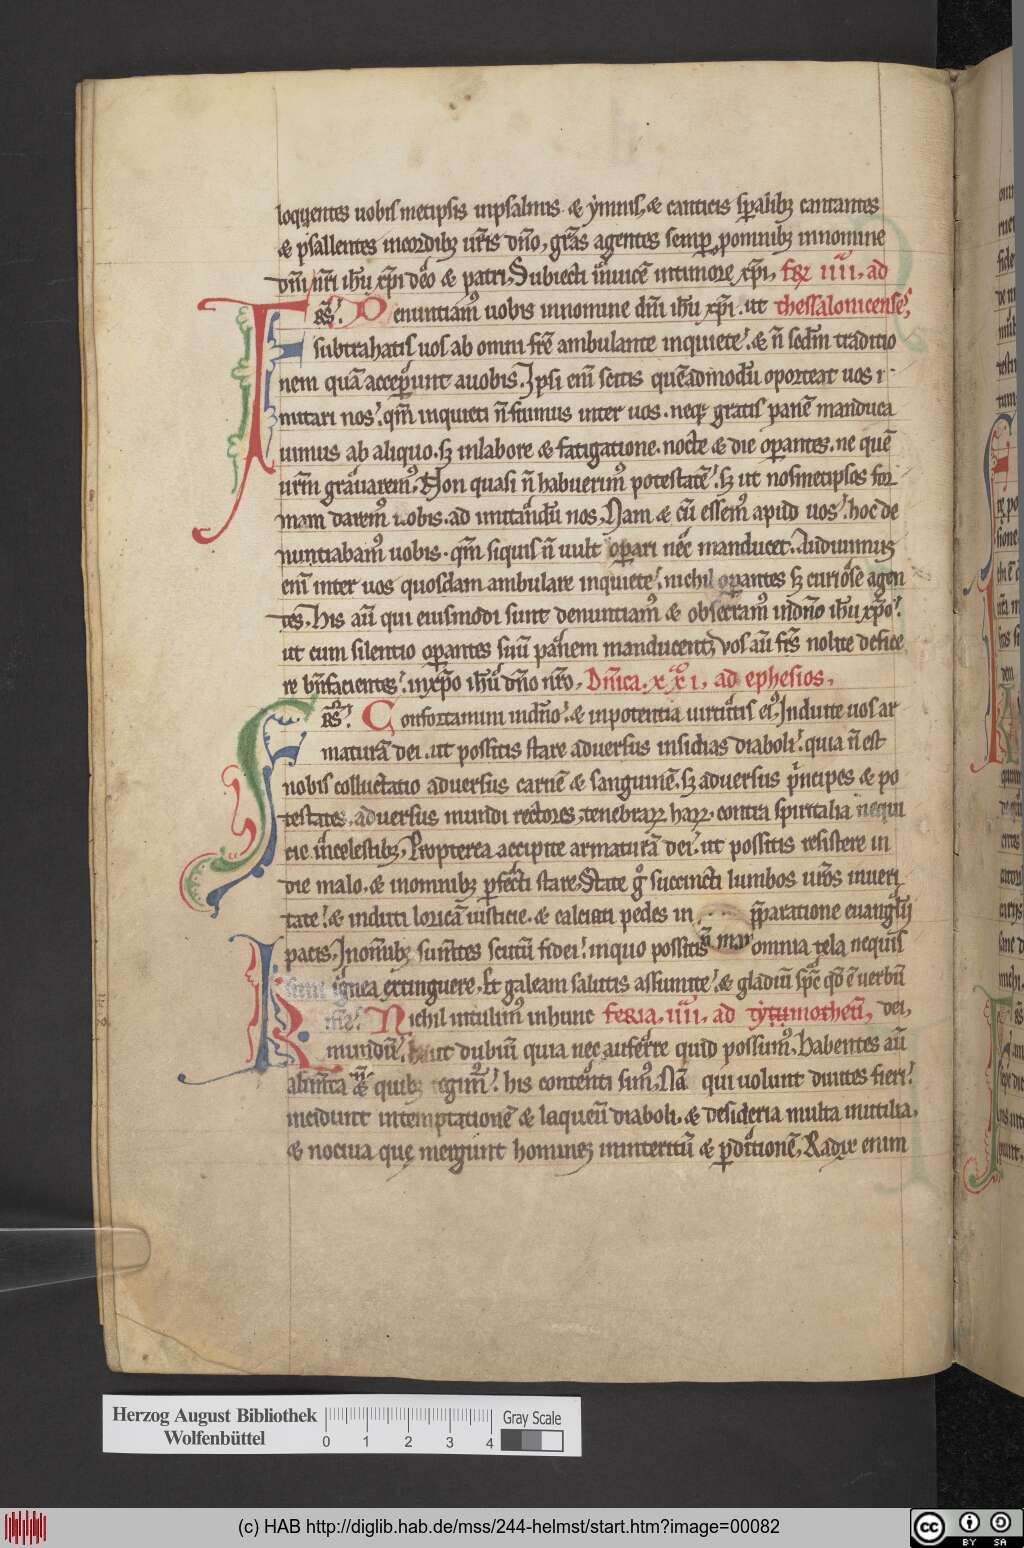 loquentes uobis metipsis inpsalmis & ẏmnis, & canticis sp̄alibꝫ cantantes
& psallentes incordibꝫ ur̄is dn̄o, gr̄as agentes semꝑ ꝓomnibꝫ innomine
dn̄i nr̄i ih̄u xp̄i deo & patri, Subiecti inuicē intimore xp̄i, fer̄ IIII, ad
Fr̄s. Denuntiamꝰ uobis innomine dn̄i ih̄u xp̄i. ut thessalonicenses
subtrahatis uos ab omni fr̄e ambulante inquiete. & n̄ sed̄m traditio
nem quā acceperunt auobis. Ipsi eni̅ scitis quēadmodū oporteat uos i
mitari nos. qm̄ inquieti n̄ fuimus inter uos. neqꝫ gratis panē manduca
uimus ab aliquo. sꝫ inlabore & fatigatione. nocte & die oꝑantes. ne quē
ur̄m grauaremꝰ, Non quasi n̄ habuerimꝰ potestatē. sꝫ ut nosmetipsos for
mam daremꝰ uobis. ad imitandū nos, Nam & cū essemꝰ apud uos. hoc de
nuntiabamꝰ uobis. qm̄ siquis n̄ uult oꝑari nec manducet. Audiuimꝰ
eni̅ inter uos quosdam ambulare inquiete. nichil oꝑantes sꝫ curiose agen
tes. his aū qui eiusmodi sunt denuntiamꝰ & obsecramꝰ indn̄o ih̄u xp̄o.
ut cum silentio oꝑantes suū panem manducent, Vos aū fr̄s nolite defice
re bn̄facientes. inxp̄o ih̄u dn̄o nr̄o, Dn̄ica. xxi, ad ephesios,
Fr̄s. Confortamini indn̄o. & inpotentia uirtutis eiꝰ. Induite uos ar
maturā dei. ut possitis stare aduersus insidias diaboli. quia n̄ est
nobis colluctatio aduersus carnē & sanguinē. sꝫ aduersus pͥncipes & po
testates. aduersus mundi rectores, tenebraꝝ haꝝ. contra spiritalia nequi
cie incelestibꝫ, Propterea accipite armaturā dei. ut possitis resistere in
die malo. & inomnibꝫ ꝑfecti stare, State gͦ succincti lumbos ur̄os inueri
tate. & induti loricā iusticie. & calciati pedes in p̄paratione euangl̄ii
pacis, Inom̄ibꝫ sum̄tes scutū fidei. inquo possitis omnia tela nequis
simi ignea extinguere, Et galeam salutis assumite. & gladiū sp̄c qd̄ ē uerbū
Nichil intulimꝰ inhunc feria, IIII, ad tẏtumotheū, dei,
mundū. haut dubiū quia nec auferre quid possumꝰ, Habentes aū
alim̄ta & quibꝫ tegimꝰ. his contenti simꝰ, Nā qui uolunt diuites fieri.
incidunt intemptationē & laqueū diaboli. & desideria multa inutilia.
& nociua quę mergunt homines ininteritū & ꝑditionē, Radix enim
Herzog August Bibliothek
Wolfenbüttel
0 1 2 3 4
Gray Scale
(c) HAB http://diglib.hab.de/mss/244-helmst/start.htm?image=00082
cc BY SA